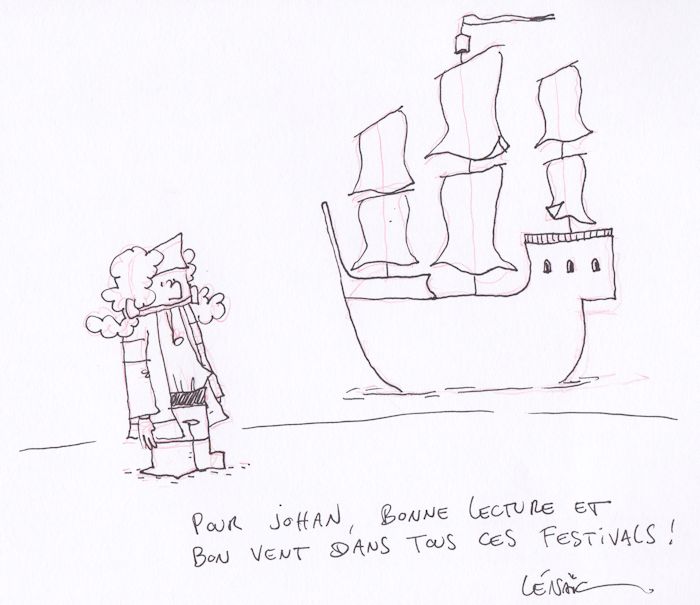 POUR JOHAN, BONNE LECTURE ET
BON VENT DANS TOUS CES FESTIVALS !
LÉNAÏC